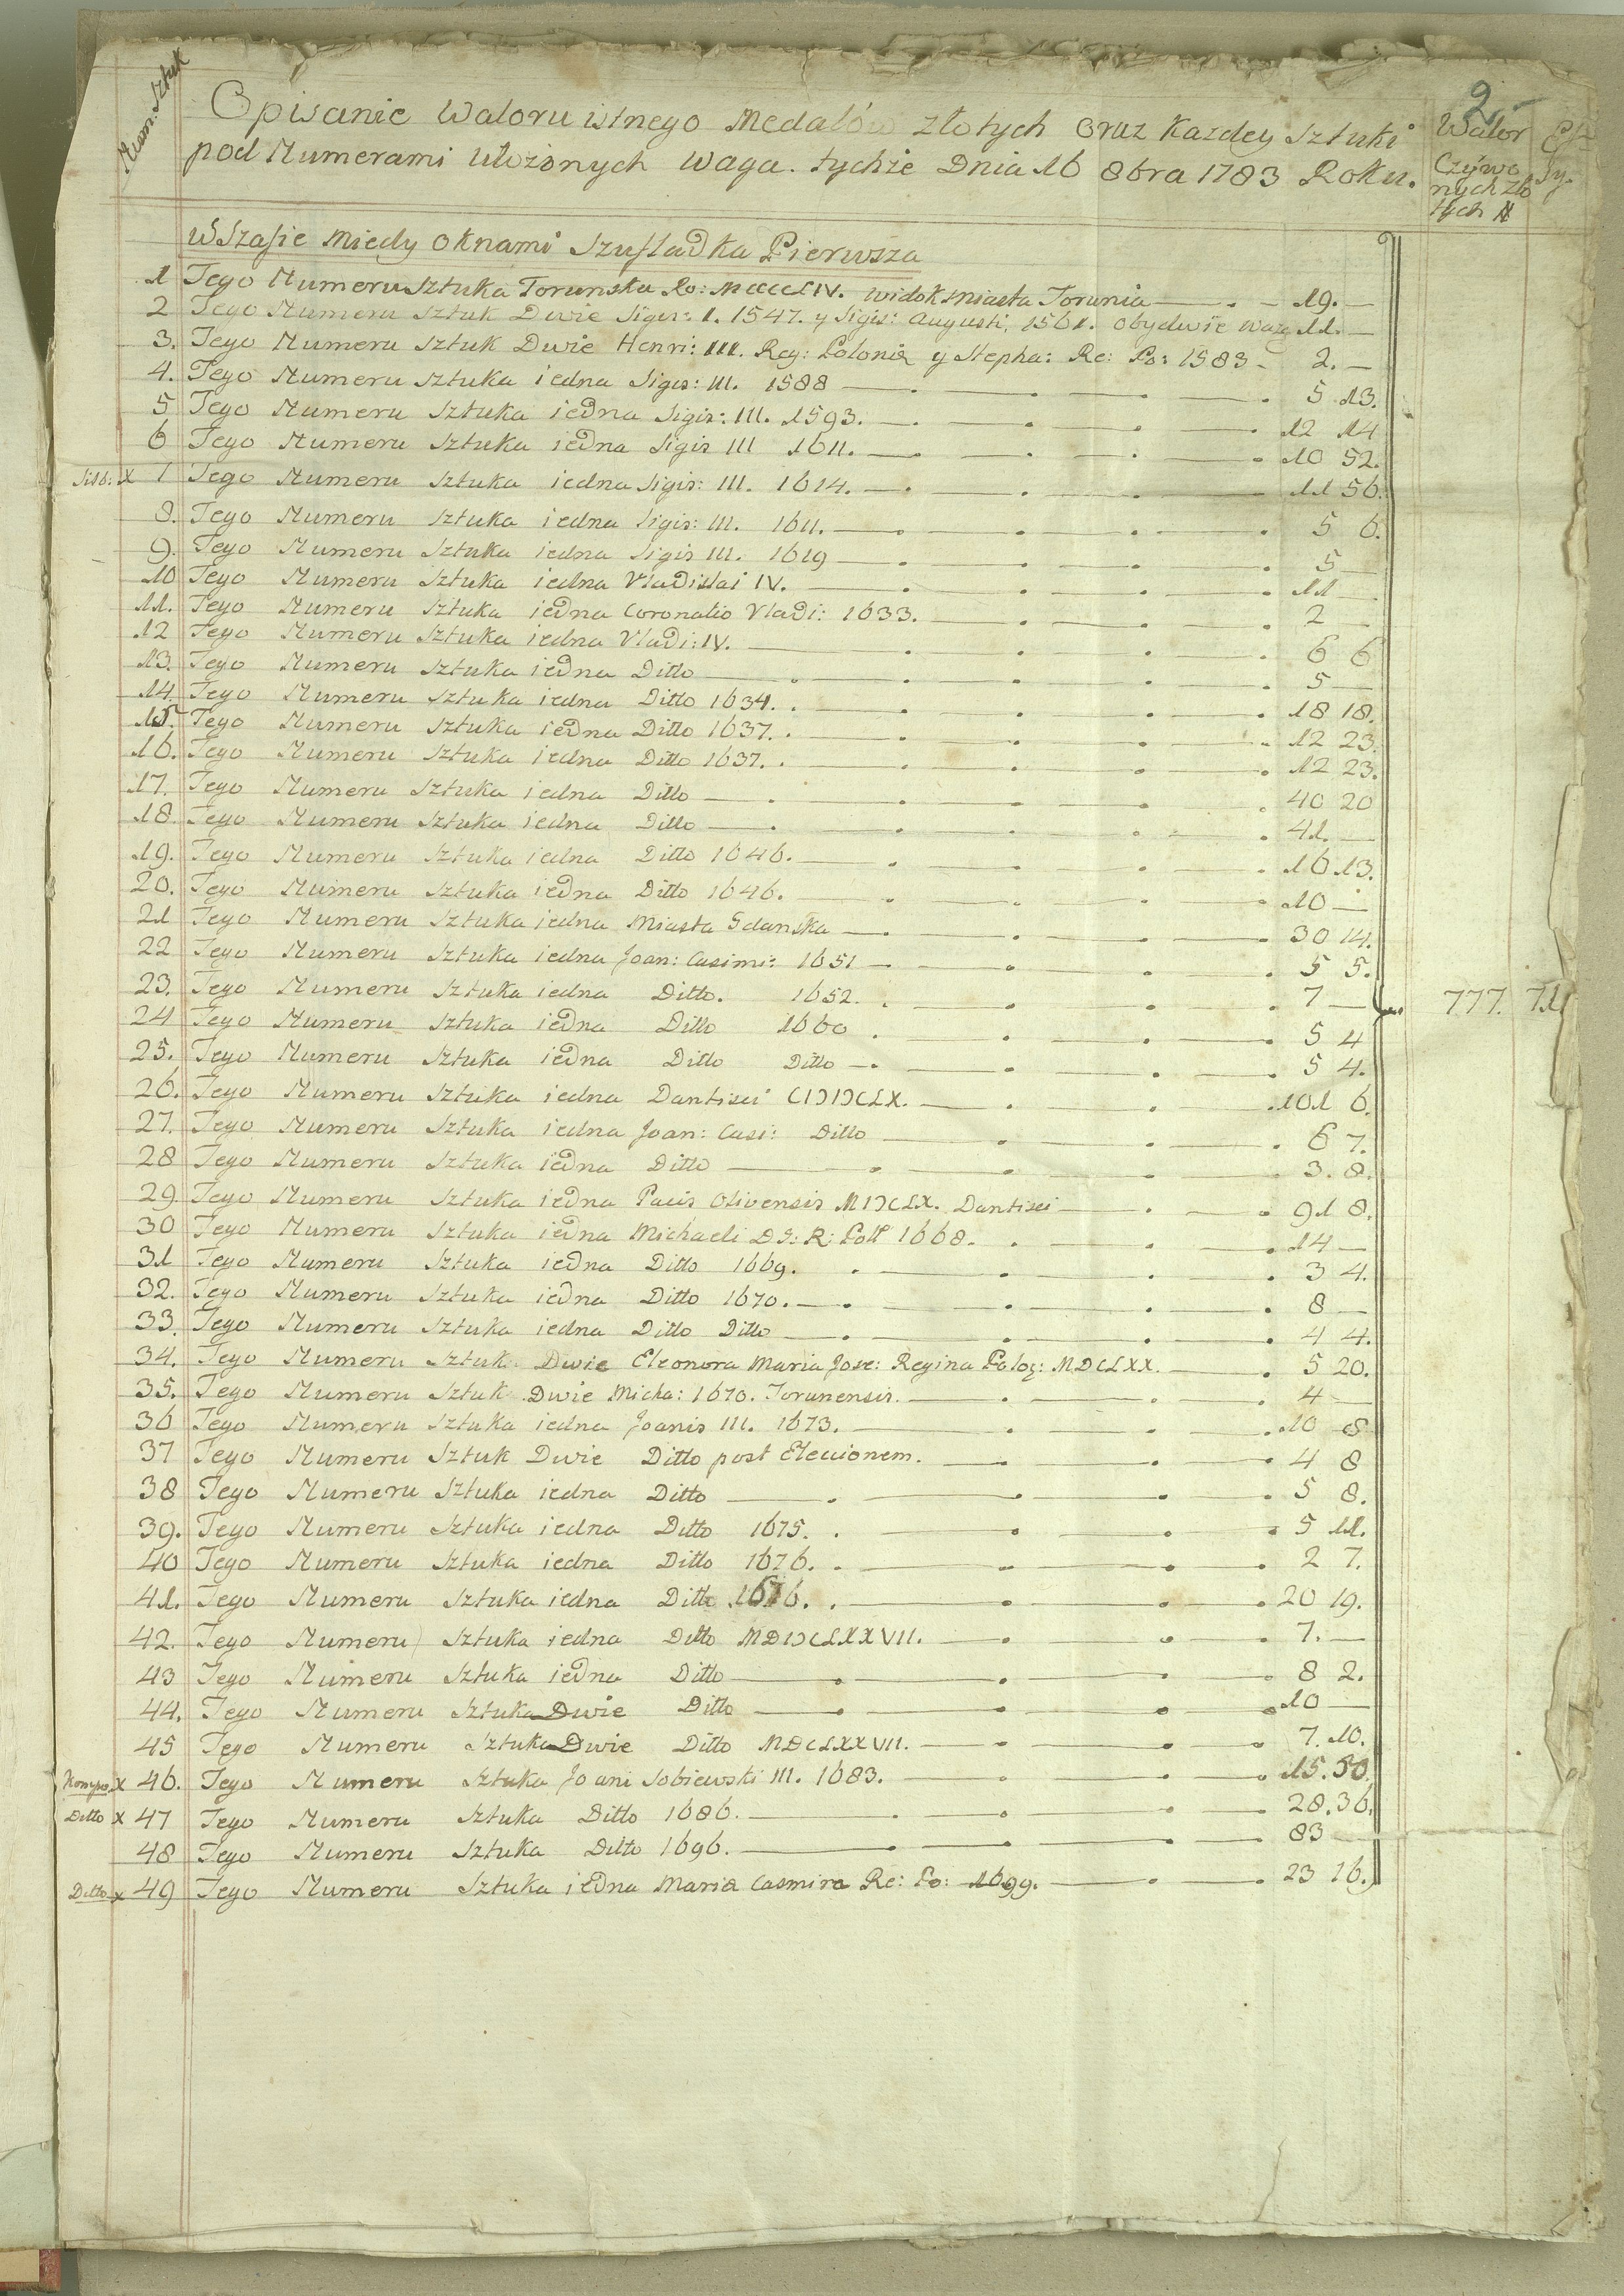 2.
Num. Sztuk
Opisanie Waloru istnego Medalów złotych oraz Kazdey Sztuki
pod Numerami ułożonych waga. tychże Dnia 16 8bra 1783 Roku.
Walor
Czyrwo
nych Zło
tych #
W Szafie Miedy oknami Szufladka Pierwsza
1 Tego Numeru Sztuka Torunska Ro: MCCCCLIV. widok Miasta Torunia 19. —
2 Tego Numeru Sztuk Dwie Sigis: I. 1547. y Sigis: Augusti, 1561. obydwie waz 11. —
3. Tego Numeru Sztuk Dwie Henri: III. Reg: Poloniæ y Stepha: Re: Po: 1583 2. —
4. Tego Numeru Sztuka iedna Sigis: III. 1588 5 13.
5 Tego Numeru Sztuka iedna Sigis: III. 1593. 12 14
6 Tego Numeru Sztuka iedna Sigis III 1611. 10 52.
X 7 Tego Numeru Sztuka iedna Sigis: III. 1614. 11 56.
8. Tego Numeru Sztuka iedna Sigis: III. 1611. 5 6.
9. Tego Numeru Sztuka iedna Sigis III. 1619 5 —
10 Tego Numeru Sztuka iedna Vladislai IV. 11 —
11. Tego Numeru Sztuka iedna Coronatio Vladi: 1633. 2 —
12 Tego Numeru Sztuka iedna Vladi: IV. 6 6
13. Tego Numeru Sztuka iedna Ditto 5 —
14. Tego Numeru Sztuka iedna Ditto 1634. 18 18.
15. Tego Numeru Sztuka iedna Ditto 1637. 12 23.
16. Tego Numeru Sztuka iedna Ditto 1637. 12 23.
17. Tego Numeru Sztuka iedna Ditto 40 20
18. Tego Numeru Sztuka iedna Ditto 41. —
19. Tego Numeru Sztuka iedna Ditto 1646. 16 13.
20. Tego Numeru Sztuka iedna Ditto 1646. 10 —
21 Tego Numeru Sztuka iedna Miasta Gdanska 30 14.
22 Tego Numeru Sztuka iedna Joan: Casimi: 1651 5 5.
23. Tego Numeru Sztuka iedna Ditto. 1652. 7 — 777. 7
24 Tego Numeru Sztuka iedna Ditto 1660 5 4
25. Tego Numeru Sztuka iedna Ditto Ditto 5 4.
26. Tego Numeru Sztuka iedna Dantisci CIƆIƆCLX. 101 6.
27. Tego Numeru Sztuka iedna Joan: Casi: Ditto 6 7.
28 Tego Numeru Sztuka iedna Ditto 3. 8.
29 Tego Numeru Sztuka iedna Pacis Olivensis MIƆCLX. Dantisci 91 8.
30 Tego Numeru Sztuka iedna Michaeli D G: R: Poll 1668. 14 —
31 Tego Numeru Sztuka iedna Ditto 1669. 3 4.
32. Tego Numeru Sztuka iedna Ditto 1670. 8 —
33. Tego Numeru Sztuka iedna Ditto Ditto 4 4.
34. Tego Numeru Sztuk Dwie Eleonora Maria Jose: Regina Polo: MDCLXX. 5 20.
35. Tego Numeru Sztuk Dwie Micha: 1670. Torunensis. 4 —
36 Tego Numeru Sztuka iedna Joanis III. 1673. 10 8
37 Tego Numeru Sztuk Dwie Ditto post Eleccionem. 4 8
38 Tego Numeru Sztuka iedna Ditto 5 8.
39. Tego Numeru Sztuka iedna Ditto 1675. 5 11.
40 Tego Numeru Sztuka iedna Ditto 1676. 2 7.
41. Tego Numeru Sztuka iedna Ditto 1676. 20 19.
42. Tego Numeru Sztuka iedna Ditto MDIƆCLXXVII. 7. —
43 Tego Numeru Sztuka iedna Ditto 8 2.
44. Tego Numeru Sztuka Dwie Ditto 10 —
45 Tego Numeru Sztuka Dwie Ditto MDCLXXVII. 7. 10.
Kompo. X 46. Tego Numeru Sztuka Joani Sobiewski III. 1683. 15. 50.
Ditto X 47 Tego Numeru Sztuka Ditto 1686. 28. 36.
48 Tego Numeru Sztuka Ditto 1696. 83 —
Ditto X 49 Tego Numeru Sztuka iedna Maria Casmira Re: Po: 1699. 23 16.